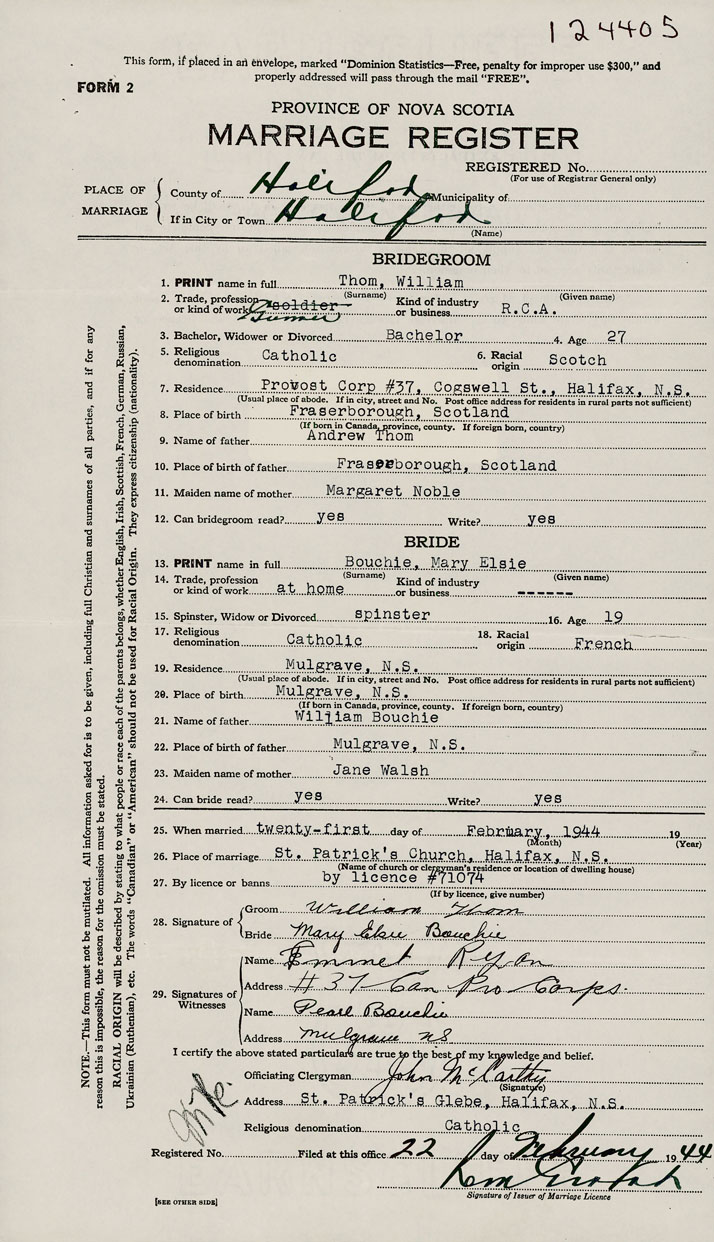 124405
This form, if placed in an envelope, marked "Dominion Statistics—Free, penalty for improper use $300," and
properly addressed will pass through the mail "FREE".
FORM 2
PROVINCE OF NOVA SCOTIA
MARRIAGE REGISTER
REGISTERED No.
(For use of Registrar General only)
PLACE OF MARRIAGE
County of Halifax Municipality of
If in City or Town Halifax
(Name)
BRIDEGROOM
1. PRINT name in full Thom, William
(Surname) (Given name)
2. Trade, profession or kind of work soldier Gunner Kind of industry or business R.C.A.
3. Bachelor, Widower or Divorced Bachelor 4. Age 27
5. Religious denomination Catholic 6. Racial origin Scotch
7. Residence Provost Corp #37, Cogswell St., Halifax, N.S.
(Usual place of abode. If in city, street and No. Post office address for residents in rural parts not sufficient)
8. Place of birth Fraserborough, Scotland
(If born in Canada, province, county. If foreign born, country)
9. Name of father Andrew Thom
10. Place of birth of father Fraserborough, Scotland
11. Maiden name of mother Margaret Noble
12. Can bridegroom read? yes Write? yes
BRIDE
13. PRINT name in full Bouchie, Mary Elsie
(Surname) (Given name)
14. Trade, profession or kind of work at home Kind of industry or business ------
15. Spinster, Widow or Divorced spinster 16. Age 19
17. Religious denomination Catholic 18. Racial origin French
19. Residence Mulgrave, N.S.
(Usual place of abode. If in city, street and No. Post office address for residents in rural parts not sufficient)
20. Place of birth Mulgrave, N.S.
(If born in Canada, province, county. If foreign born, country)
21. Name of father William Bouchie
22. Place of birth of father Mulgrave, N.S.
23. Maiden name of mother Jane Walsh
24. Can bride read? yes Write? yes
25. When married twenty-first day of February, 1944 19
(Month) (Year)
26. Place of marriage St. Patrick's Church, Halifax, N.S.
(Name of church or clergyman's residence or location of dwelling house)
27. By licence or banns by licence #71074
(If by licence, give number)
28. Signature of
Groom William Thom
Bride Mary Elsie Bouchie
29. Signatures of Witnesses
Name Emmet Ryan
Address #37 Can Pro Corps.
Name Pearl Bouchie
Address Mulgrave NS
I certify the above stated particulars are true to the best of my knowledge and belief.
Officiating Clergyman John McCarthy
(Signature)
Address St. Patrick's Glebe, Halifax, N.S.
Religious denomination Catholic
Registered No. Filed at this office 22 day of February 1944
Signature of Issuer of Marriage Licence
[SEE OTHER SIDE]
NOTE.—This form must not be mutilated. All information asked for is to be given, including full Christian and surnames of all parties, and if for any
reason this is impossible, the reason for the omission must be stated.
RACIAL ORIGIN will be described by stating to what people or race each of the parents belongs, whether English, Irish, Scottish, French, German, Russian,
Ukrainian (Ruthenian), etc. The words "Canadian" or "American" should not be used for Racial Origin. They express citizenship (nationality).